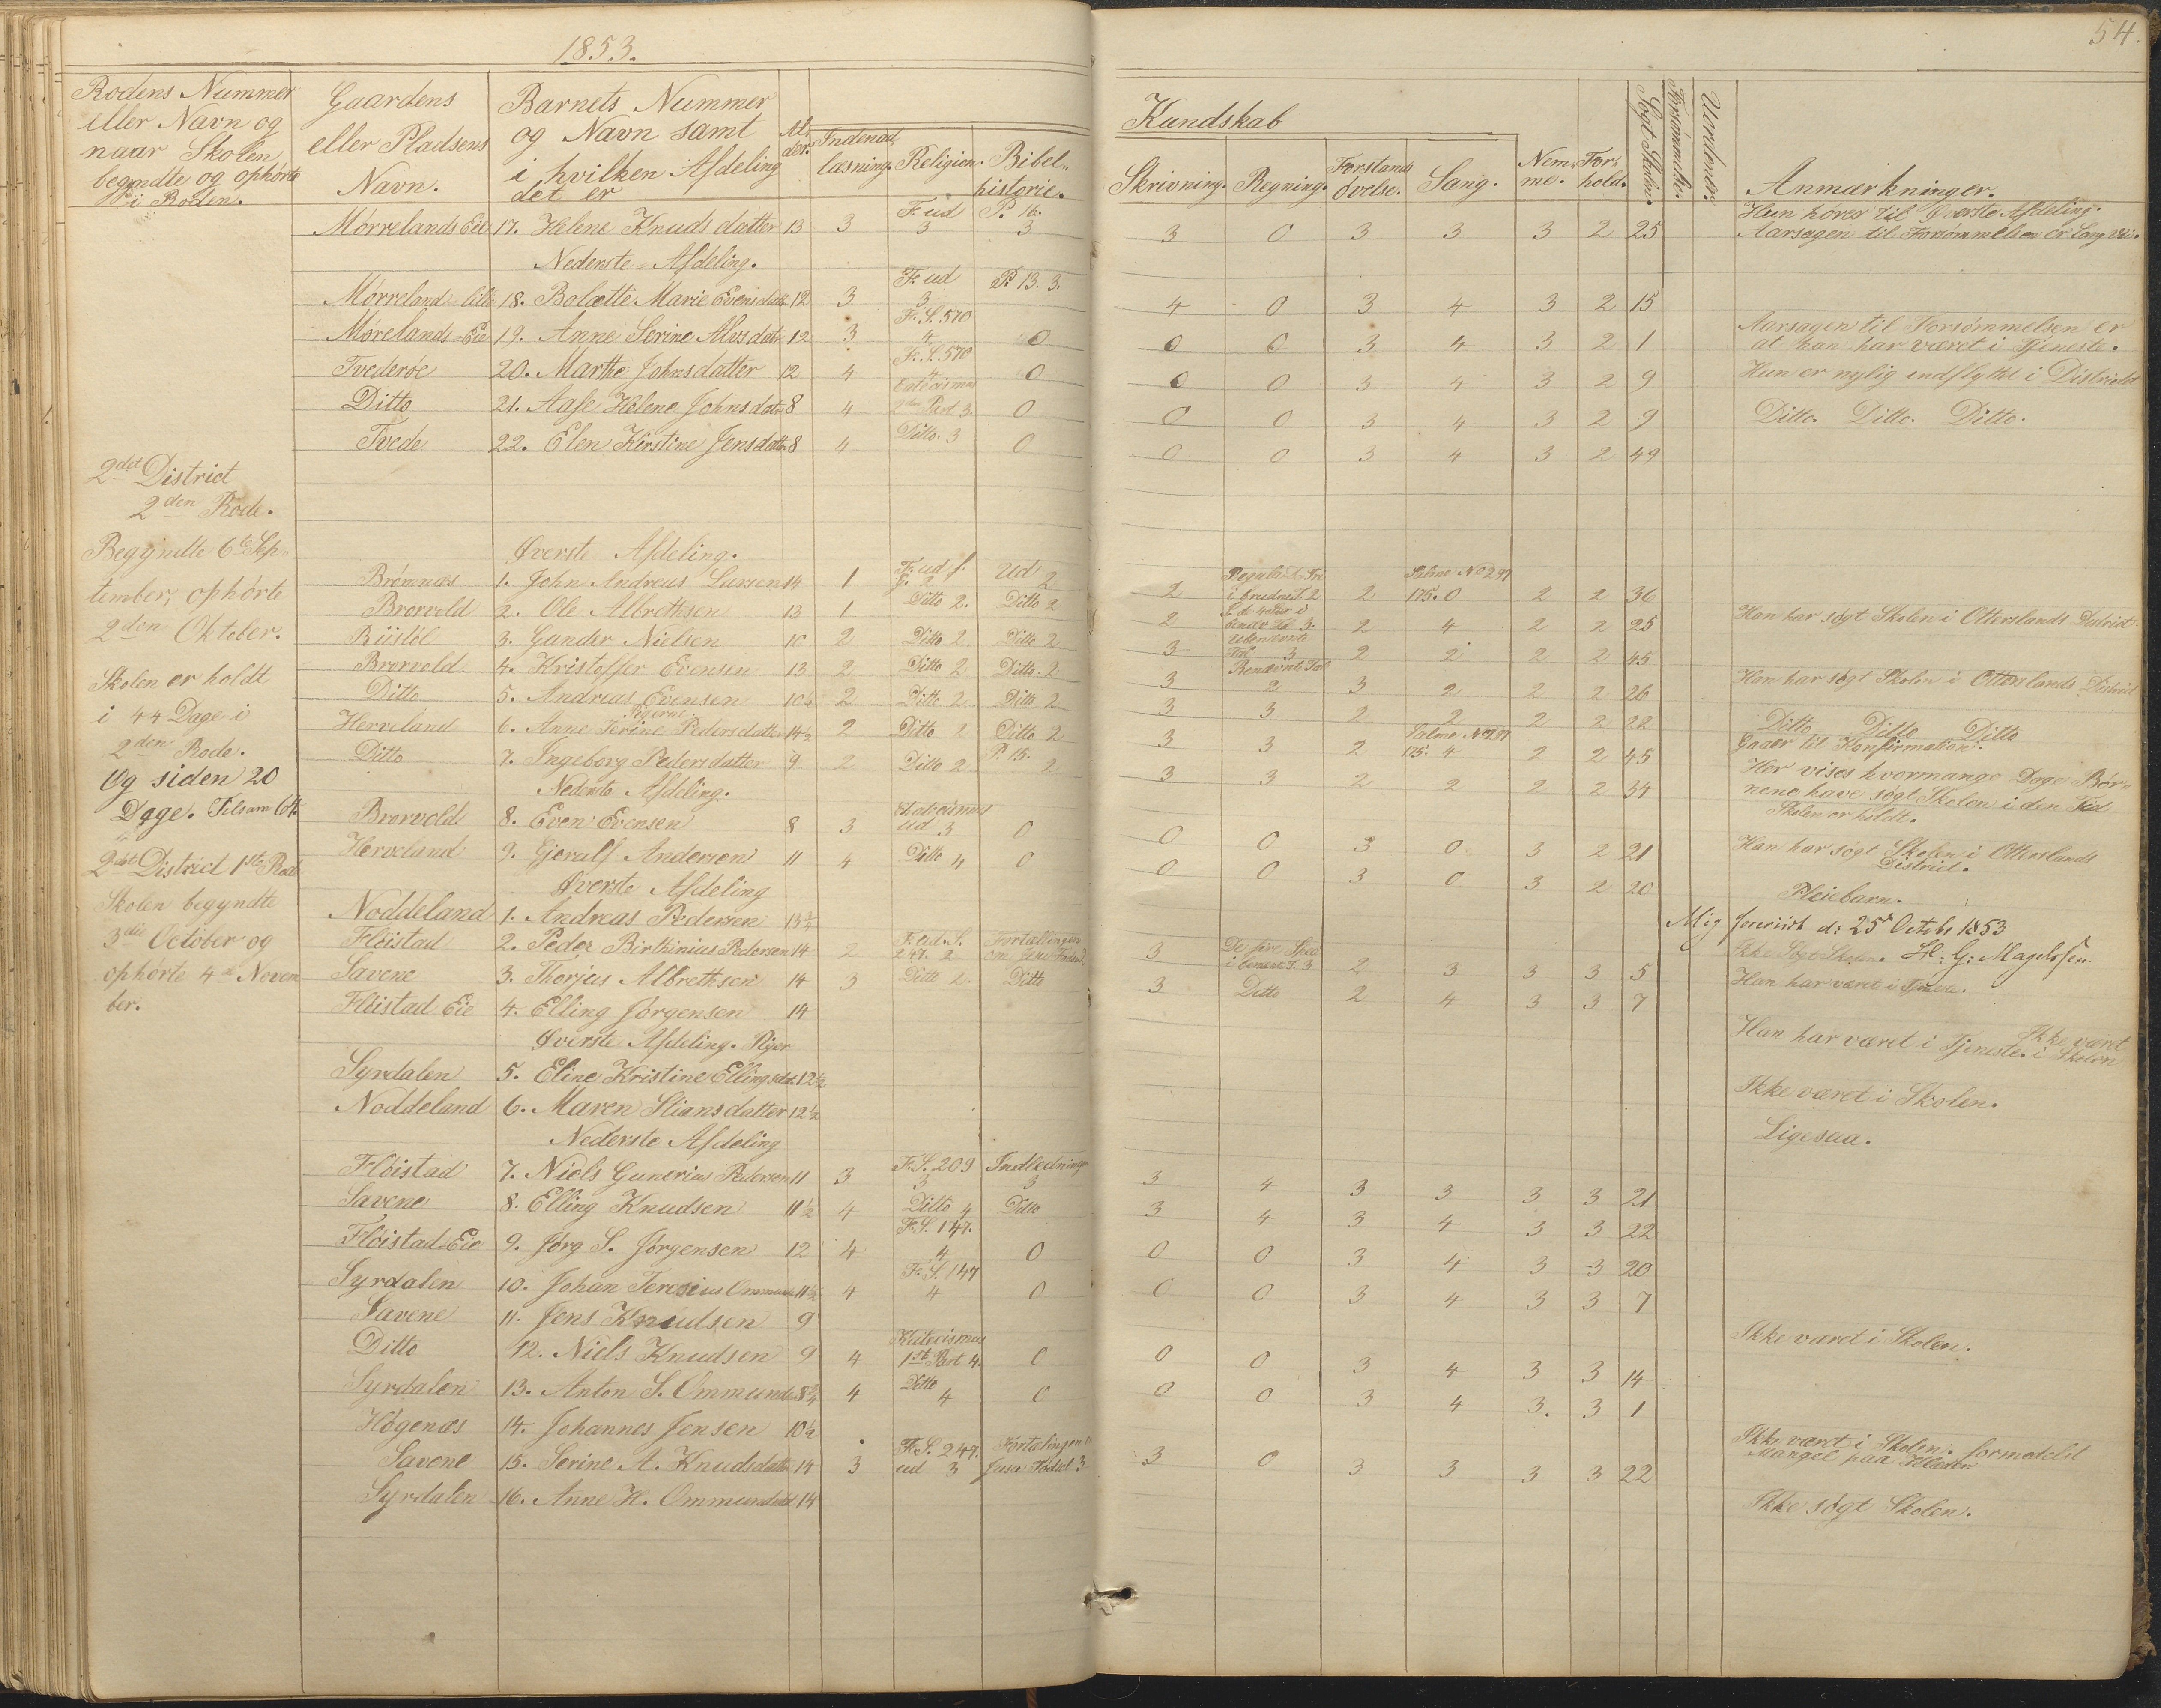 1853.
54.
Rodens Nummer
eller Navn og
naar Skolen
begyndte og ophørte
i Roden.
Gaardens
eller Pladsens
Navn.
Barnets Nummer
og Navn samt
i hvilken Afdeling
det er
Al-
der.
Indenad
læsning.
Religion.
Bibel-
historie.
Kundskab
Skrivning.
Regning.
Forstands
øvelse.
Sang.
Nem-
me.
For-
hold.
Søgt Skolen.
Forsømmelse.
Uordener.
Anmærkninger.
Mørrelands Eie 17. Helene Knudsdatter 13 3 F. ud 3 P. 16. 3 3 0 3 3 3 2 25 Hun hører til Øverste Afdeling.
Aarsagen til Forsømmelsen er Lang Vei.
Nederste Afdeling.
Mørreland 18. Bolette Marie Evensdatt 12 3 F. ud 3 P. 13. 3. 4 0 3 4 3 2 15
Mørelands Eie 19. Anne Serine Alvsdatr 12 3 F. S. 570 4 0 0 0 3 4 3 2 1 Aarsagen til Forsømmelsen er
at han har været i Tjeneste.
Tvederøe 20. Marthe Johnsdatter 12 4 F. S. 570 4 0 0 0 3 4 3 2 9 Hun er nylig indflyttet i Distriktet
Ditto 21. Aase Helene Johnsdatr 8 4 2den Part 3. 0 0 0 3 4 3 2 9 Ditto. Ditto. Ditto.
Tvede 22. Elen Kirstine Jensdatter 8 4 Ditto. 3 0 0 0 3 4 3 2 49
2det District
2den Rode.
Begyndte 6te Sep-
tember, ophørte
2den Oktober.
Skolen er holdt
i 44 Dage i
2den Rode.
Og siden 20
Dage. Tilsam 64.
Øverste Afdeling.
1. John Andreas Larsen 14 1 F. ud f. 2 Ud 2 2 Regula D. Tri i 2 2 Salme No 297 175. 0 2 2 36
Brorvold 2. Ole Albrethsen 13 1 Ditto 2. Ditto 2 2 3. 2 4 2 2 25 Han har søgt Skolen i Otterslands District
Riisløl 3. Gunder Nielsen 10 2 Ditto 2 Ditto 2 3 Ubenævnte Tal 3 2 2 2 2 45
Brorvold 4. Kristoffer Evensen 13 2 Ditto 2 Ditto. 2 3 Benævnt Tal 2 3 2 2 2 26 Han har søgt Skolen i Otterslands District
Ditto 5. Andreas Evensen 10½ 2 Ditto 2 Ditto 2 3 3 2 2 2 2 22 Ditto Ditto Ditto
Pigerne
Herreland 6. Anne Terine Pedersdatter 14½ 2 Ditto 2 Ditto 2 3 3 2 Salme No 297 175. 4 2 2 45 Gaaer til Konfirmation.
Ditto 7. Ingeborg Pedersdatter 9 2 Ditto 2 P. 15. 2 3 3 2 2 2 2 34 Her vises hvormange Dage Bør-
nene have søgt Skolen i den Tid
Skolen er holdt.
Nederste Afdeling.
Brorvold 8. Even Evensen 8 3 Katecismus ud 3 0 0 0 3 0 3 2 21 Han har søgt Skolen i Otterslands
District.
Herreland 9. Gjerulf Andersen 11 4 Ditto 4 0 0 0 3 0 3 2 20 Pleiebarn.
2det District 1ste Rode
Skolen begyndte
3die October og
ophørte 4de Novem
ber.
Øverste Afdeling
Mig foreviist d: 25d Octobr 1853
H: G: Magelssen.
Noddeland 1. Andreas Pedersen 13¾ Ikke Søgt Skolen.
Fløistad 2. Peder Birthinius Pedersen 14 2 F. ud S. 247. 2 Fortællingen om 3 De fire Spec i benævt T. 3 2 3 3 3 5
Savene 3. Thorjus Albrethsen 14 3 Ditto 2. Ditto 3 Ditto 2 4 3 3 7 Han har været i Tjeneste.
Fløistad Eie 4. Elling Jørgensen 14 Han har været i Tjeneste. Ikke været
i Skolen
Øverste Afdeling. Piger
Syrdalen 5. Eline Kristine Ellingsdat. 12½ Ikke været i Skolen.
Noddeland 6. Maren Stiansdatter 12½ Ligesaa.
Nederste Afdeling
Fløistad 7. Niels Gunerius Pedersen 11 3 F. S. 209 3 Indledningen 3 3 4 3 3 3 3 21
Savene 8. Elling Knudsen 11½ 4 Ditto 4 Ditto 3 4 3 4 3 3 22
Fløistad Eie 9. Jørg S. Jørgensen 12 4 F. S. 147. 4 0 0 0 3 4 3 3 20
Syrdalen 10. Johan Teresius Ommunds 11½ 4 F. S. 147 4 0 0 0 3 4 3 3 7
Savene 11. Jens Knudsen 9 Ikke været i Skolen.
Ditto 12. Niels Knudsen 9 4 Katecismus 1ste Part 4. 0 0 0 3 4 3 3 14
Syrdalen 13. Anton S. Ommunds 8¾ 4 Ditto 4 0 0 0 3 4 3. 3 1
Høgenæs 14. Johannes Jensen 10½ Ikke været i Skolen. formedelst
Mangel paa Klæder.
Savene 15. Serine A. Knudsdatter 14 3 F. S. 247. ud 3 Fortælingen Jesu Fødsel 3 3 0 3 3 3 3 22
Syrdalen 16. Anne H. Ommundsdat 14 Ikke søgt Skolen.